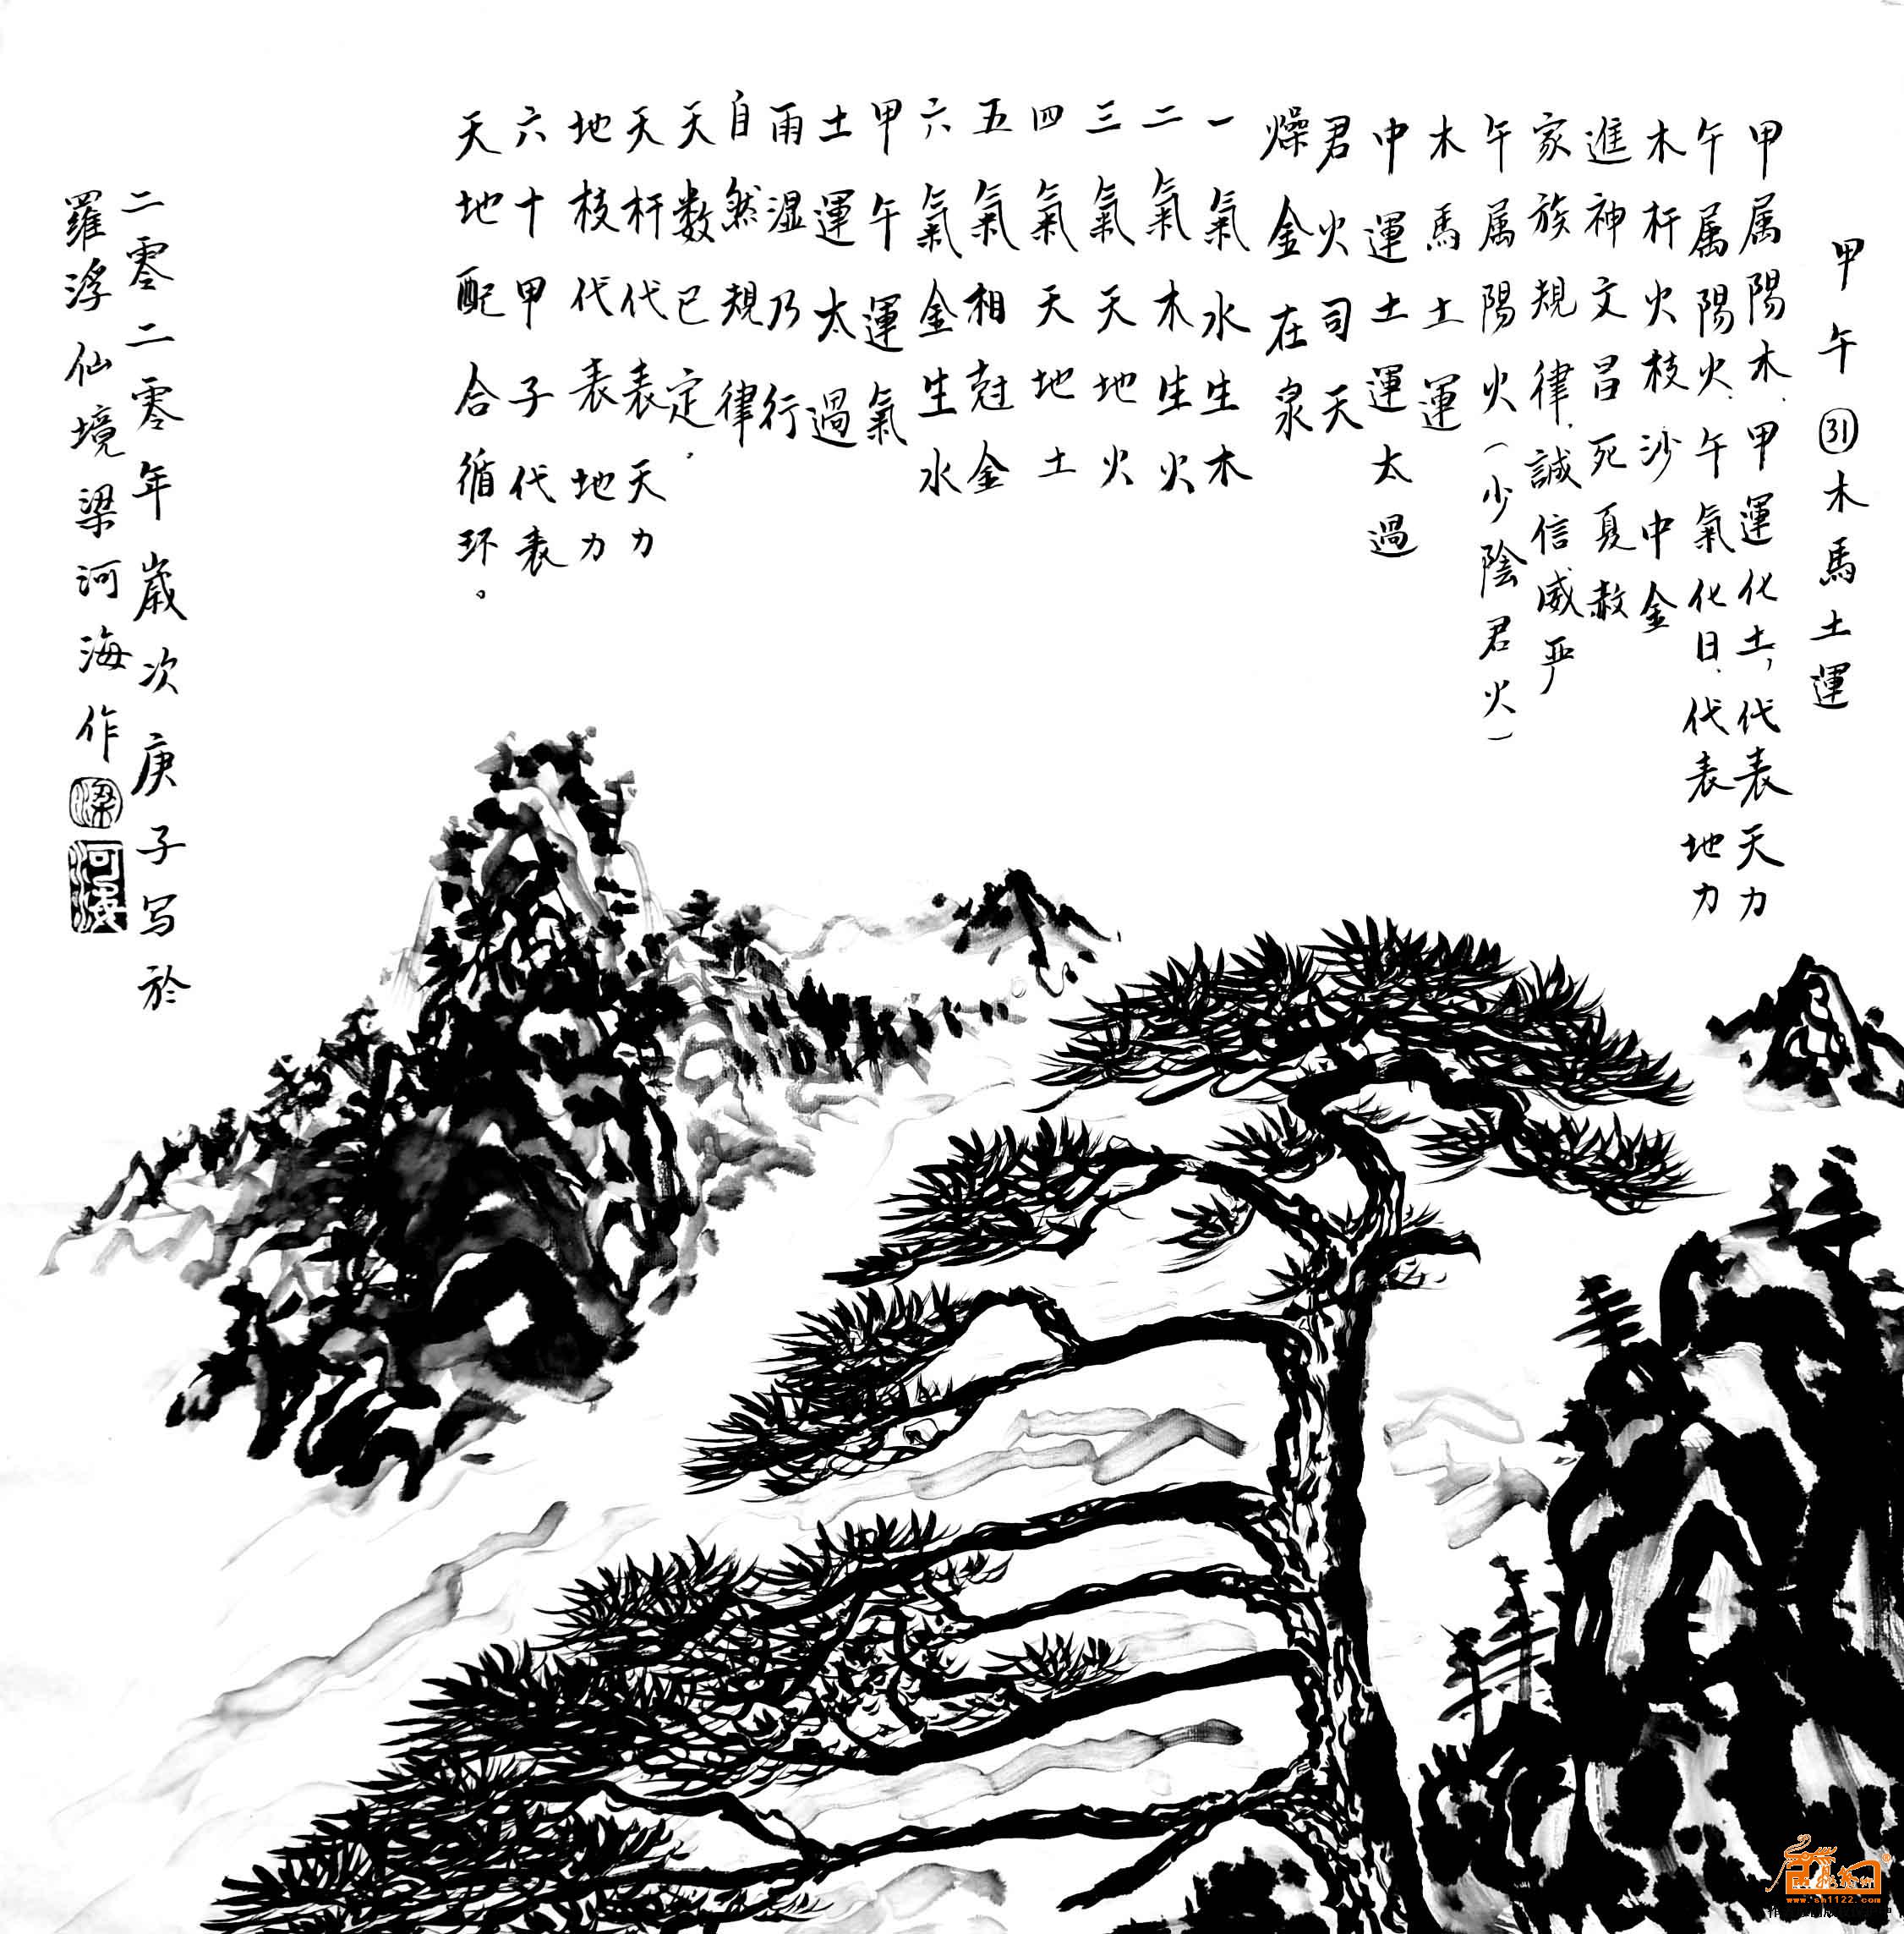 甲午㉛木馬土運
甲属陽木.甲運化土,代表天力
午属陽火.午氣化日.代表地力
木杆火枝沙中金
進神文昌死夏赦
家族規律.誠信威严
午属陽火(少陰君火)
木馬土運
中運土土運太過
君火司天
燥金在泉
一氣水生木
二氣木生火
三氣天地火
四氣天地土
五氣相尅金
六氣金生水
甲午運氣
土運太過
雨湿乃行
自然規律
天数已定,
天杆代表天力
地枝代表地力
六十甲子代表
天地配合循环。
二零二零年歲次庚子写於
羅浮仙境梁河海作
梁
河海
www.sh1122.com